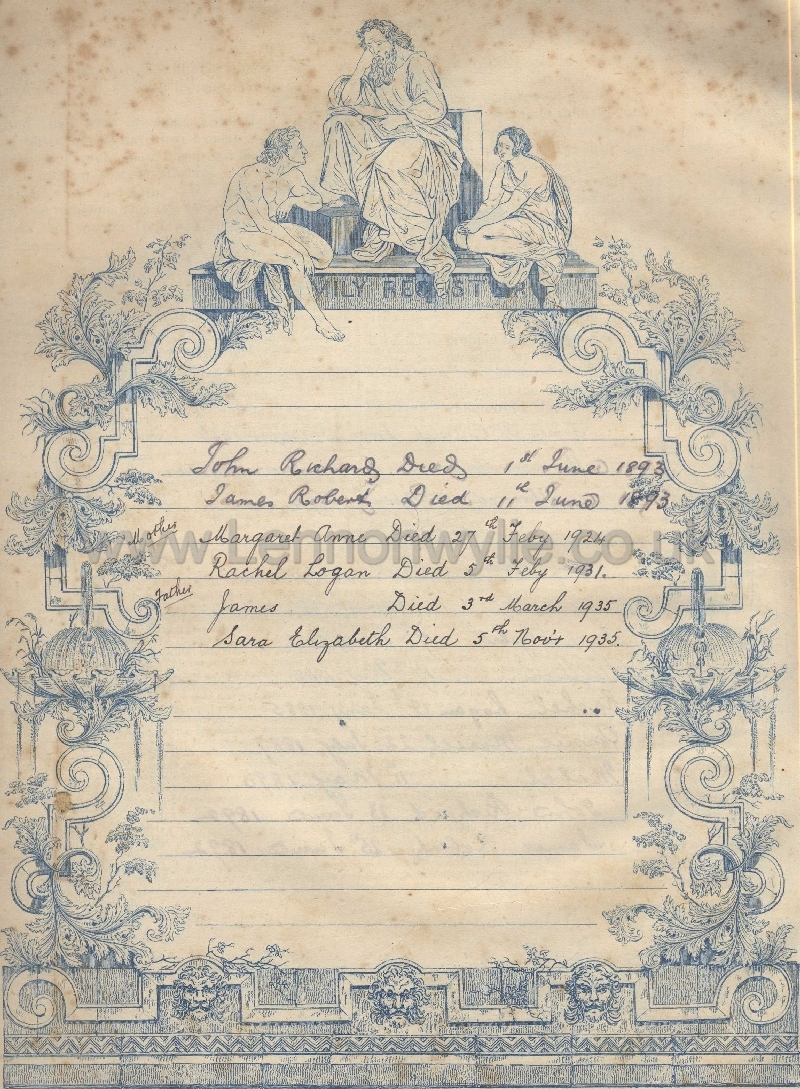 FAMILY REGISTER
John Richard Died 1st June 1893
James Robert Died 11th June 1893
Mother Margaret Anne Died 27th Feby 1924
www.Lennonwylie.co.uk
Rachel Logan Died 5th Feby 1931.
Father James Died 3rd March 1935
Sara Elizabeth Died 5th Novr 1935.